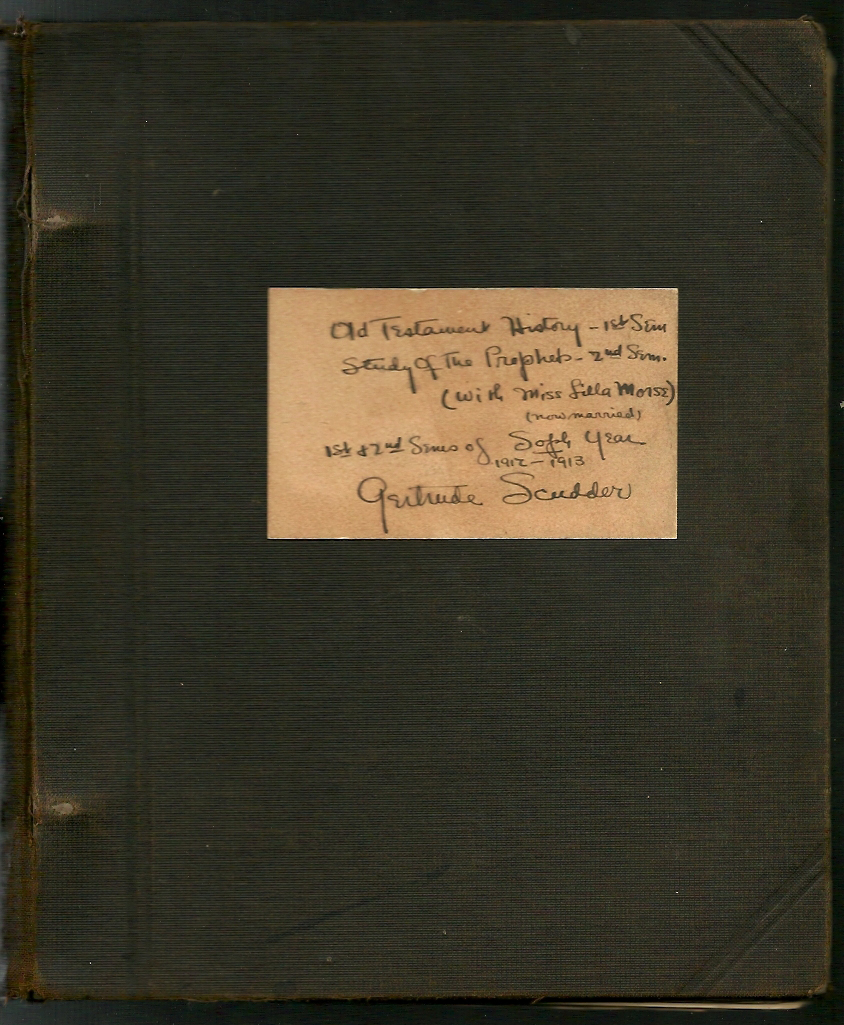 Old Testament History - 1st Sem
Study of the Prophets - 2nd Sem.
(with Miss Lilla Morse)
(now married)
1st & 2nd Sems of Soph Year
1912-1913
Gertrude Scudder